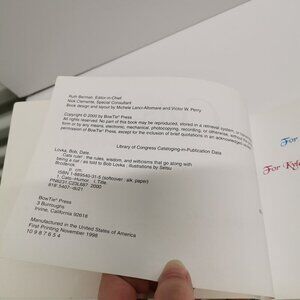 Ruth Berman, Editor-in-Chief
Nick Clemente, Special Consultant
Book design and layout by Michele Lanci-Altomare and Victor W. Perry
Copyright © 2000 by BowTie® Press
All rights reserved. No part of this book may be reproduced, stored in a retrieval system, or
form or by any means, electronic, mechanical, photocopying, recording, or otherwise, without
permission of BowTie® Press, except for the inclusion of brief quotations in an acknowledged
Library of Congress Cataloging-in-Publication Data
Lovka, Bob, Date.
Cats rule! : the rules, wisdom, and witticisms that go along with
being a cat / as told to Bob Lovka ; illustrations by Setsu
Broderick.
p. cm.
ISBN 1-889540-31-5 (softcover : alk. paper)
1. Cats--Humor. I. Title.
PN6231.C23L687 2000
818'.5407--dc21
BowTie® Press
3 Burroughs
Irvine, California 92618
Manufactured in the United States of America
First Printing November 1998
10 9 8 7 6 5 4
For
For Kel